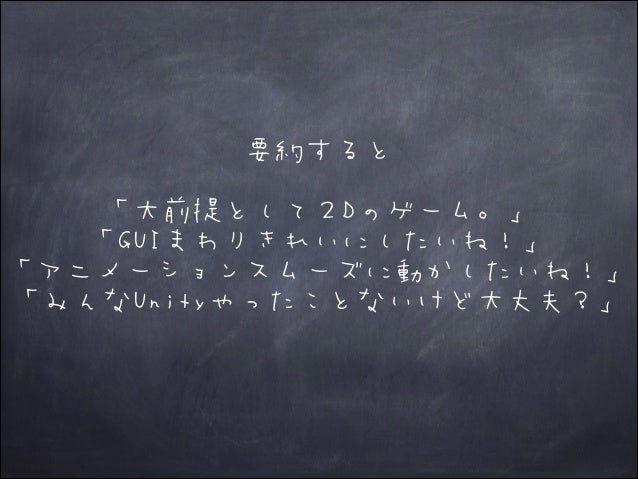 要約すると
「大前提として2Dのゲーム。」
「GUIまわりきれいにしたいね！」
「アニメーションスムーズに動かしたいね！」
「みんなUnityやったことないけど大丈夫？」